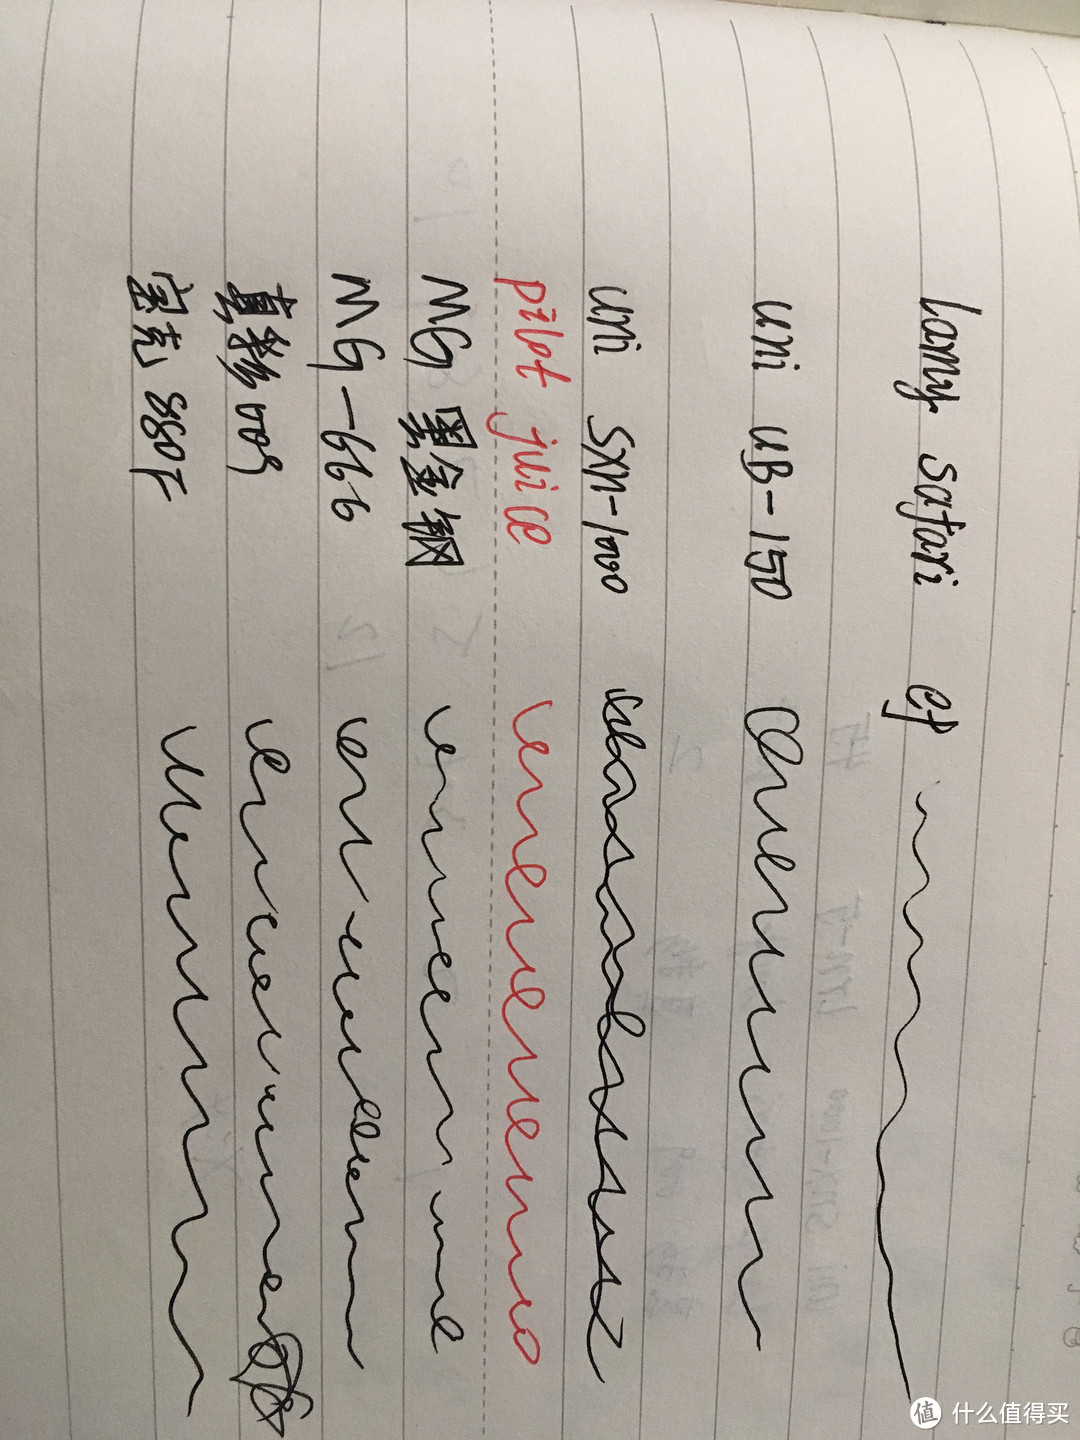 Lamy Safari ef
uni UB-150
uni SXN-1000
pilot juice
MG 黑金钢
MG-666
真彩009
宝克 880F
值 什么值得买